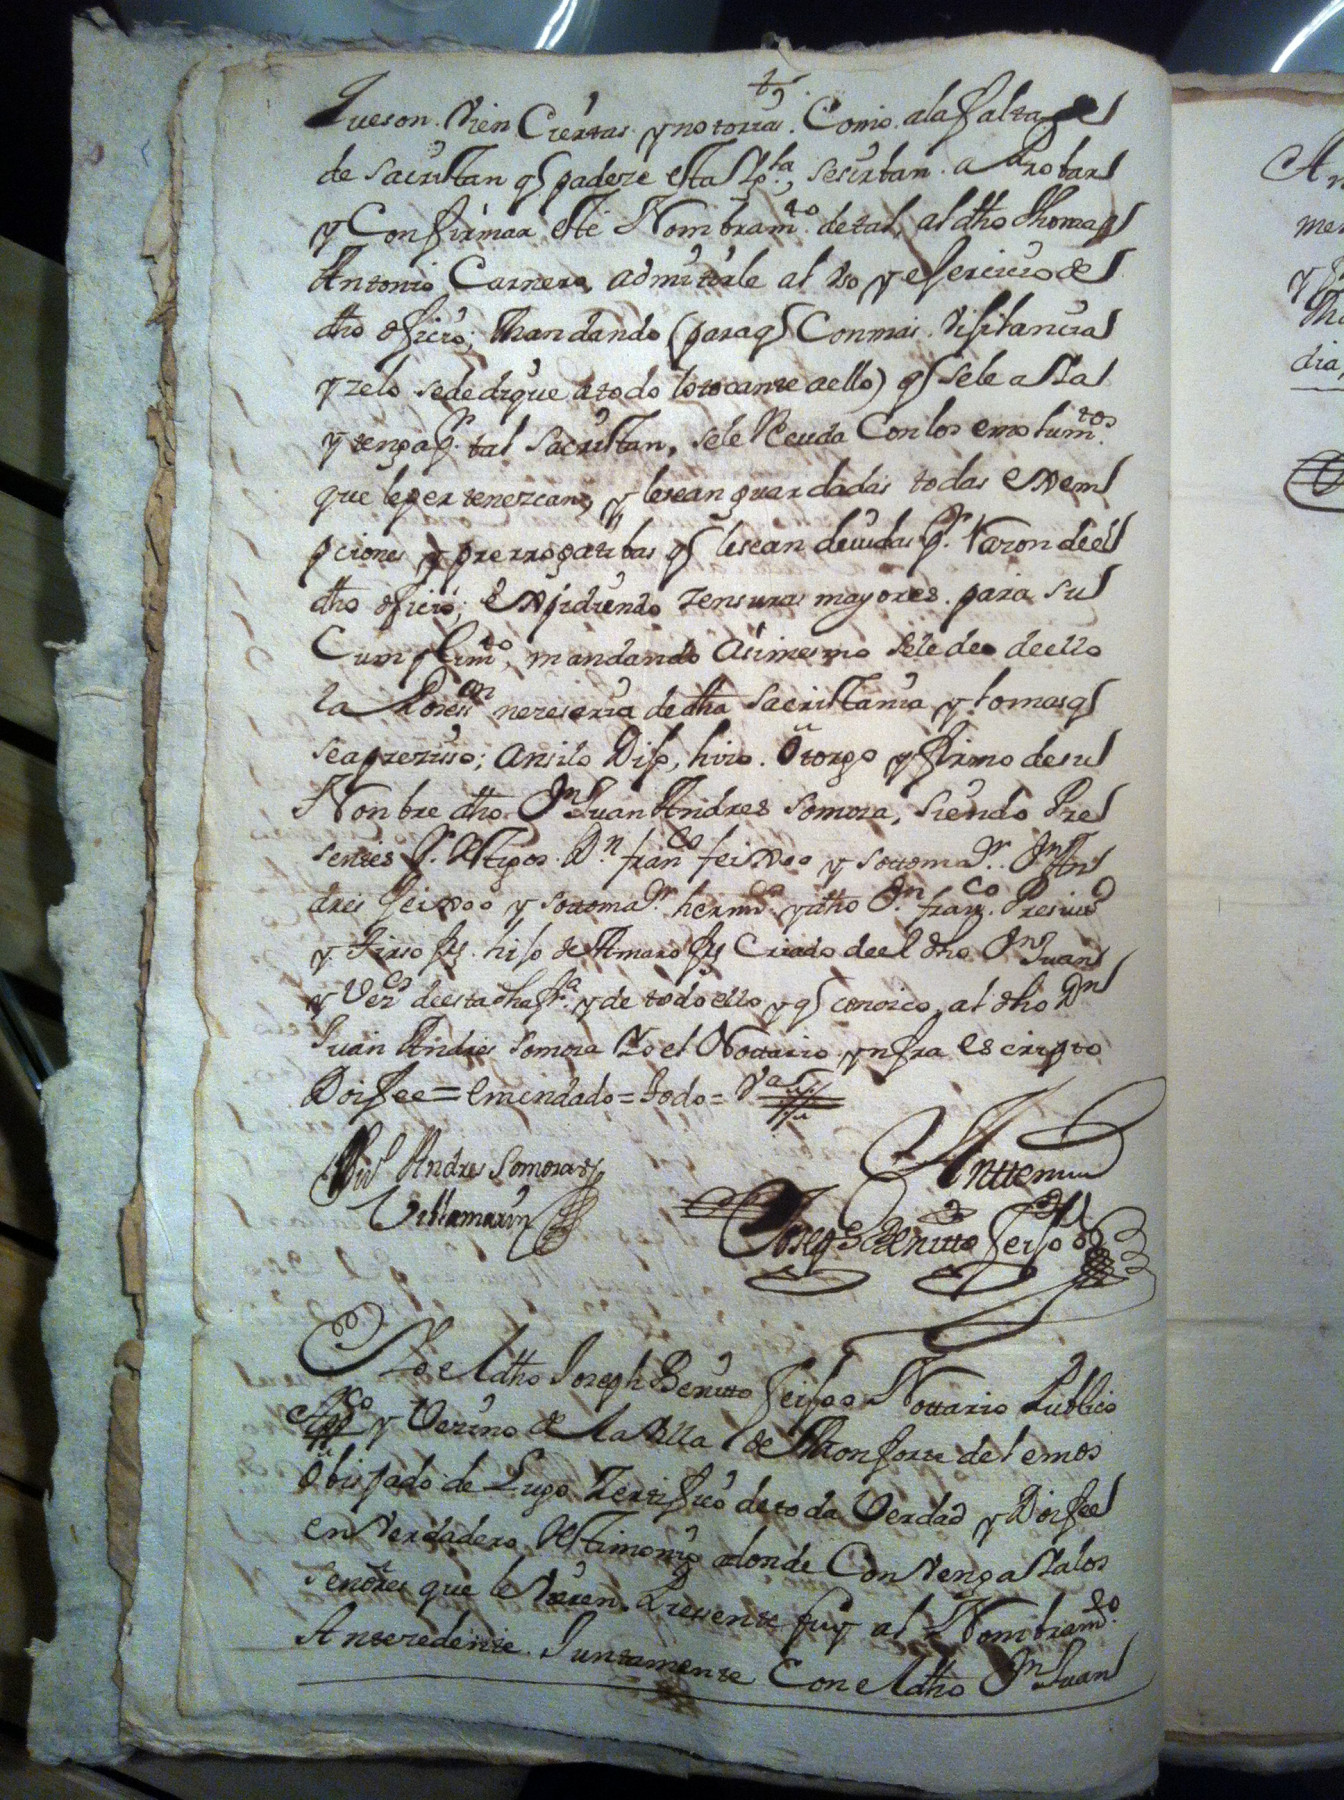 Queson. Vien Ciertas y notorias. Como. ala falta de
de sacristan q padeze esta Ygla, sesirban. a Probar
y Confirmar este Nombramto. de tal, al dho Thomas
Antonio Carnero, admitirle al Vso y esercicio de
dho oficio; Mandando (paraq Conmas. Visilancia
y zelo sededique atodo lotocante aello) q sele aia
y tenga Pr. tal Sacristan, sele Rcuda Conlos emolumtos.
que lepertenezcan, y lesean guardadas todas exem
pciones y prerrogatibas q lesean deuidas Pr. Razon deel
dho oficio; Expidiendo zensuras mayores. para su
Cumplimto, mandando Asimesmo sele de deello
la Posesion nezesaria dedha sacristania y lo mas q
sea preziso; Ansilo Diso, hizo. Otorgo y firmo desu
Nombre dho Dn Juan Andres Somoza, siendo Pre
sentes Pr. testigos. Dn franco feixoo y sottomaor. Dn An
dres feixoo y sottomaor. hermo. y dho Dn. franco.
y Tirso frz. hiso de Amaro frz Criado deel dho Dn Juan
y Vezo deesta dha fra. y de todo ello y q conozco, al dho Dn
Juan Andres Somoza Yo el Nottario ynfra escripto
Doifee = emendado = todo = Va
Jun Andres Somoza
Villamarin
Anttemi
Joseph Benitto feisoo
Yo el dho Joseph Benitto feisoo Nottario Publico
Appco y Vezino de la Villa de Monforte de Lemos
Obispado de Lugo Zertifico de toda Verdad y Doifee
en Verdadero testimonio adonde Convenga Alos
Senores que le Vieren. Presente fuy al Nombramto.
Antezedente. Juntamente Con el dho Dn Juan